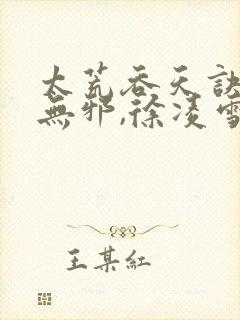 太荒吞天訣
無邪,徐凌雪
王某紅